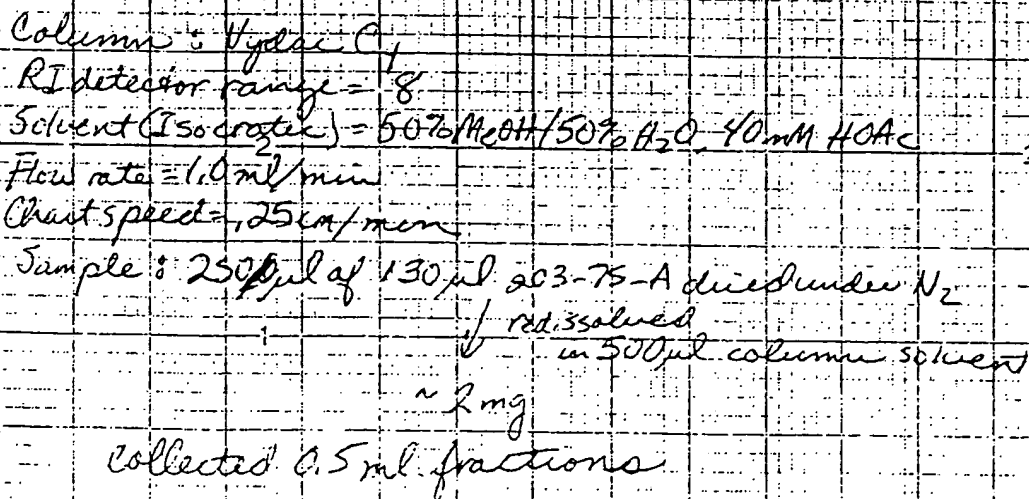 Column : Vydac C4
RI detector range = 8
Solvent (Isocratic) = 50% MeOH/50% H2O 40mM HOAc
2
Flow rate = 1.0 ml/min
Chart speed = .25 cm/min
Sample : 250 µl of 130 µl 203-75-A dried under N2
↓ redissolved
1
in 500 µl column solvent
~ 2 mg
collected 0.5 ml fractions